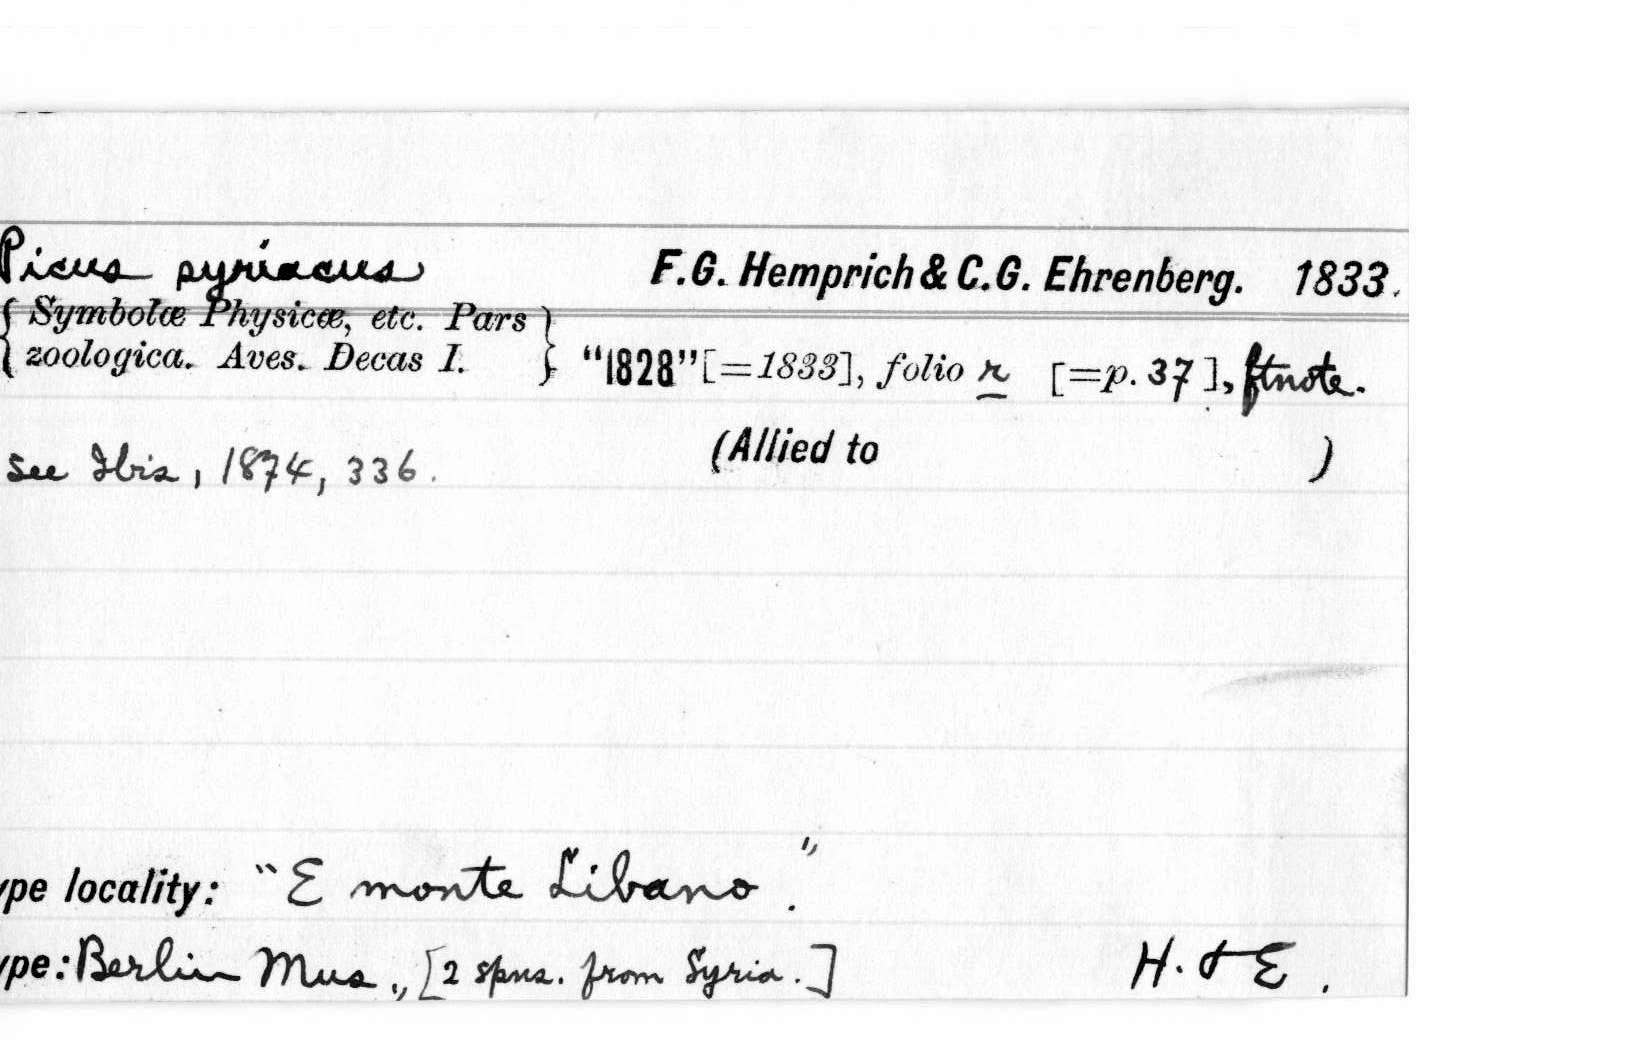 Picus syriacus F.G. Hemprich & C.G. Ehrenberg. 1833.
{ Symbolæ Physicæ, etc. Pars }
{ zoologica. Aves. Decas I. } "1828" [=1833], folio r [=p. 37], ftnote.
see Ibis, 1874, 336. (Allied to )
ype locality: "E monte Libano."
ype: Berlin Mus., [2 spns. from Syria.] H. & E.